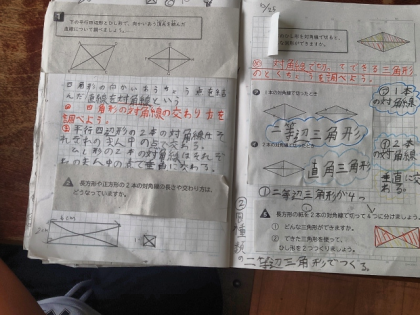 下の平行四辺形とひし形で、向かいあう頂点を結んだ
直線について調べましょう。
四角形の向かいあうちょう点を結
んだ直線を対角線という
四角形の対角線の交わり方を
調べよう。
平行四辺形の2本の対角線はそ
れぞれのまん中の点で交わる。
ひし形の2本の対角線はそれぞ
れのまん中の点で垂直に交わる。
長方形や正方形の2本の対角線の長さや交わり方は、
どうなっていますか。
6cm
対角線で切ってできる三角形
のとくちょうを調べよう。
1本の対角線で切ったとき
1本
の対角線
二等辺三角形
2本の対角線で切ったとき
直角三角形
2本
の対角線
垂直に交
わる
①二等辺三角形が4つ
長方形の紙を2本の対角線で切って4つに分けましょう。
① どんな三角形ができますか。
② できた三角形を使って、
ひし形を2つつくりましょう。
②同じ種類の
二等辺三角形でつくる。